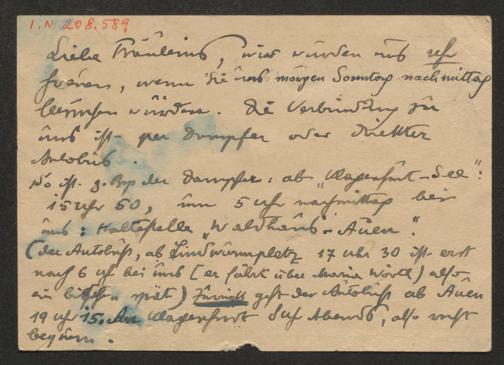 I.N. 208.589
Liebe Fräuleins, wir würden uns sehr
freuen, wenn Sie uns morgen Sonntag nachmittag
besuchen würden. Die Verbindung zu
uns ist per Dampfer oder direkter
Autobus.
So ist z. Bsp der Dampfer: ab „Klagenfurt-See":
15 Uhr 50, um 5 Uhr nachmittag bei
uns: Haltestelle „Waldhaus-Auen".
(der Autobus, ab Lindwurmplatz 17 Uhr 30 ist erst
nach 6 Uhr bei uns (er fährt über Maria Wörth) also
ein bißchen spät) Zurück geht der Autobus ab Auen
19 Uhr 15. An Klagenfurt Abends, also recht
bequem.